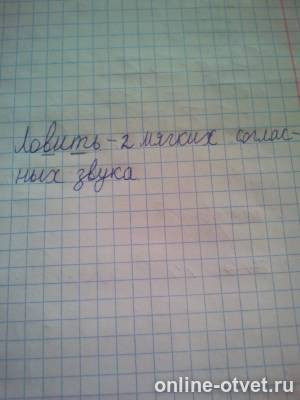 Ловить - 2 мягких соглас-
ных звука
online-otvet.ru